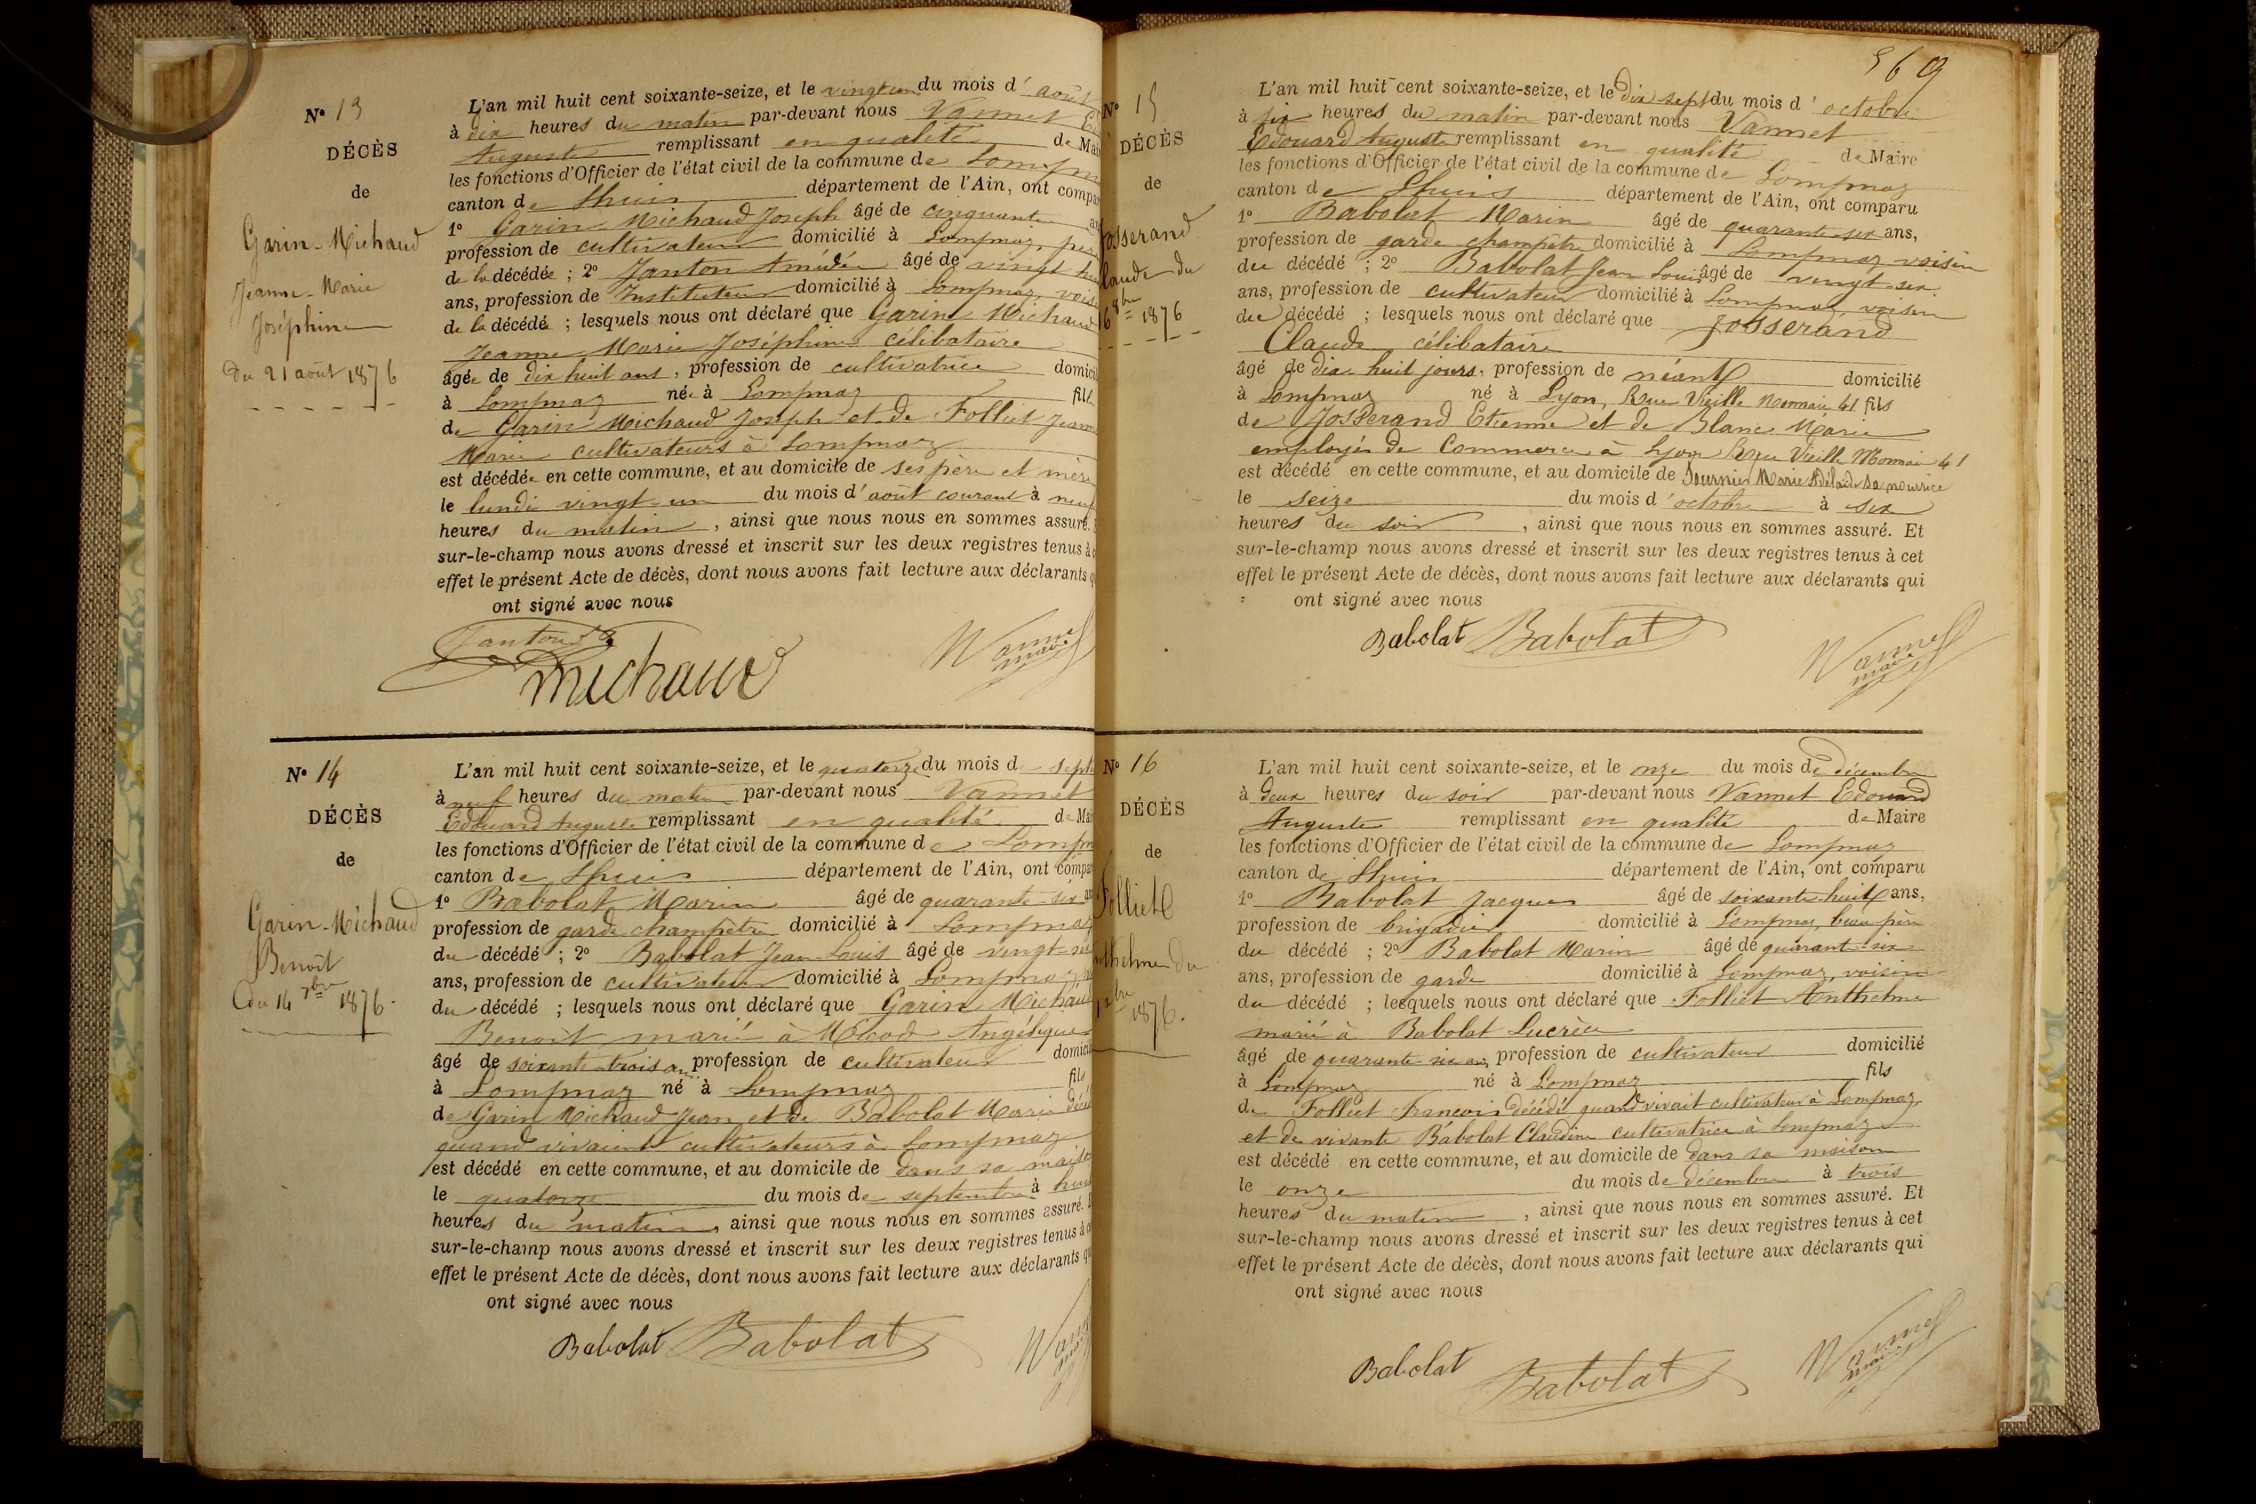 N° 13
DÉCÈS
de
Garin-Michaud
Jeanne-Marie
Joséphine
du 21 août 1876
L'an mil huit cent soixante-seize, et le vingt un du mois d'août
à dix heures du matin par-devant nous Vannet
Auguste remplissant en qualité de
les fonctions d'Officier de l'état civil de la commune de
canton de Lhuis département de l'Ain, ont
1° Garin Michaud Joseph âgé de cinquante
profession de cultivateur domicilié à Lompnaz,
de la décédée ; 2° Janton Amédée âgé de vingt
ans, profession de Instituteur domicilié à Lompnaz,
de la décédée ; lesquels nous ont déclaré que Garin Michaud
Jeanne Marie Joséphine célibataire
âgée de dix huit ans, profession de cultivatrice
à Lompnaz née à Lompnaz
de Garin Michaud Joseph et de Folliet
Marie cultivateurs à Lompnaz
est décédée en cette commune, et au domicile de ses père et mère
le lundi vingt-un du mois d'août courant à neuf
heures du matin, ainsi que nous nous en sommes assuré.
sur-le-champ nous avons dressé et inscrit sur les deux registres tenus à
effet le présent Acte de décès, dont nous avons fait lecture aux déclarants
ont signé avec nous
Janton
Michaud
Vannet
maire
N° 14
DÉCÈS
de
Garin-Michaud
Benoît
du 14 7bre 1876.
L'an mil huit cent soixante-seize, et le quatorze du mois de
à neuf heures du matin par-devant nous Vannet
Edouard Auguste remplissant en qualité de
les fonctions d'Officier de l'état civil de la commune de
canton de Lhuis département de l'Ain, ont
1° Babolat Marin âgé de quarante-six
profession de garde champêtre domicilié à Lompnaz
du décédé ; 2° Babolat Jean Louis âgé de
ans, profession de cultivateur domicilié à Lompnaz
du décédé ; lesquels nous ont déclaré que Garin Michaud
Benoît, marié à Angélique
âgé de soixante-trois an, profession de cultivateur
à Lompnaz né à Lompnaz fils
de Garin Michaud Jean et de Babolat Marie
quand vivaient cultivateurs à Lompnaz
est décédé en cette commune, et au domicile de dans sa maison
le quatorze du mois de septembre à
heures du matin, ainsi que nous nous en sommes assuré.
sur-le-champ nous avons dressé et inscrit sur les deux registres tenus à
effet le présent Acte de décès, dont nous avons fait lecture aux déclarants
ont signé avec nous
Babolat Babolat
569
N° 15
DÉCÈS
de
Josserand
du
16 8bre 1876
L'an mil huit cent soixante-seize, et le dix sept du mois d'octobre
à six heures du matin par-devant nous Vannet
Edouard Auguste remplissant en qualité de Maire
les fonctions d'Officier de l'état civil de la commune de Lompnaz
canton de Lhuis département de l'Ain, ont comparu
1° Babolat Marin âgé de quarante-six ans,
profession de garde champêtre domicilié à Lompnaz voisin
du décédé ; 2° Babolat Jean Louis âgé de vingt-six
ans, profession de cultivateur domicilié à Lompnaz, voisin
du décédé ; lesquels nous ont déclaré que Josserand
Claude célibataire
âgé de dix-huit jours, profession de néant domicilié
à Lompnaz né à Lyon, Rue Vieille Monnaie 41 fils
de Josserand Etienne et de Blanc Marie
employés de Commerce à Lyon Rue Vieille Monnaie 41
est décédé en cette commune, et au domicile de Fournier Marie Adélaïde sa nourrice
le seize du mois d'octobre à six
heures du soir, ainsi que nous nous en sommes assuré. Et
sur-le-champ nous avons dressé et inscrit sur les deux registres tenus à cet
effet le présent Acte de décès, dont nous avons fait lecture aux déclarants qui
ont signé avec nous
Babolat Babolat
Vannet
maire
N° 16
DÉCÈS
de
Folliet
du
1876.
L'an mil huit cent soixante-seize, et le onze du mois de décembre
à deux heures du soir par-devant nous Vannet Edouard
Auguste remplissant en qualité de Maire
les fonctions d'Officier de l'état civil de la commune de Lompnaz
canton de Lhuis département de l'Ain, ont comparu
1° Babolat Jacques âgé de soixante-huit ans,
profession de brigadier domicilié à Lompnaz, beau père
du décédé ; 2° Babolat Marin âgé de quarant-six
ans, profession de garde domicilié à Lompnaz, voisin
du décédé ; lesquels nous ont déclaré que Folliet Anthelme
marié à Babolat Lucrèce
âgé de quarante-six an, profession de cultivateur domicilié
à Lompnaz né à Lompnaz fils
de Folliet François décédé quand vivait cultivateur à Lompnaz,
et de vivante Babolat Claudine cultivatrice à Lompnaz
est décédé en cette commune, et au domicile de dans sa maison
le onze du mois de décembre à trois
heures du matin, ainsi que nous nous en sommes assuré. Et
sur-le-champ nous avons dressé et inscrit sur les deux registres tenus à cet
effet le présent Acte de décès, dont nous avons fait lecture aux déclarants qui
ont signé avec nous
Babolat Babolat
Vannet
maire